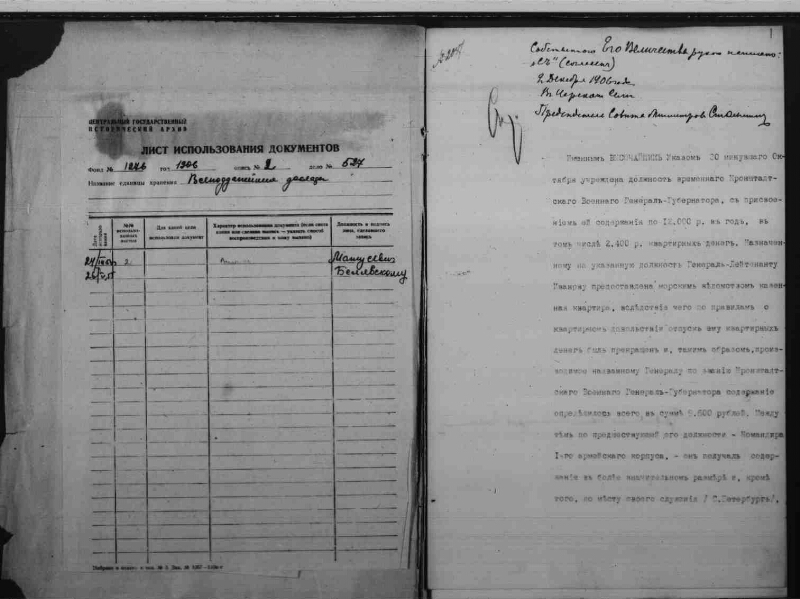 ЦЕНТРАЛЬНЫЙ ГОСУДАРСТВЕННЫЙ
ИСТОРИЧЕСКИЙ АРХИВ
ЛИСТ ИСПОЛЬЗОВАНИЯ ДОКУМЕНТОВ
Фонд № 1276 год 1906 опись № 2 дело № 527
Название единицы хранения Всеподданнейший доклад
Дата использования
№№ использован. листов
Для какой цели использован документ
Характер использования документа (если снята копия или сделана выпись — указать способ воспроизведения и кому выдана)
Должность и подпись лица, сделавшего запись
2
Мацусевич
Белявскому
1
Собственною Его Величества рукою написано:
„Съ" (согласенъ)
2 Декабря 1906 года
Въ Царскомъ Селѣ
Предсѣдатель Совѣта Министровъ Столыпинъ
Именнымъ ВЫСОЧАЙШИМЪ Указомъ 20 минувшаго Ок-
тября учреждена должность временнаго Кронштадт-
скаго Военнаго Генералъ-Губернатора, съ присвое-
ніемъ ей содержанія по 12.000 р. въ годъ, въ
томъ числѣ 2.400 р. квартирныхъ денегъ. Назначен-
ному на указанную должность Генералъ-Лейтенанту
Иванову предоставлена морскимъ вѣдомствомъ казен-
ная квартира, вслѣдствіе чего по правиламъ о
квартирномъ довольствіи отпускъ ему квартирныхъ
денегъ былъ прекращенъ и, такимъ образомъ, произ-
водимое названному Генералу по званію Кронштадт-
скаго Военнаго Генералъ-Губернатора содержаніе
опредѣлилось всего въ суммѣ 9.600 рублей. Между
тѣмъ по предшествующей его должности - Командира
I-го армейскаго корпуса, - онъ получалъ содер-
жаніе въ болѣе значительномъ размѣрѣ и, кромѣ
того, по мѣсту своего служенія / С.Петербургъ/,